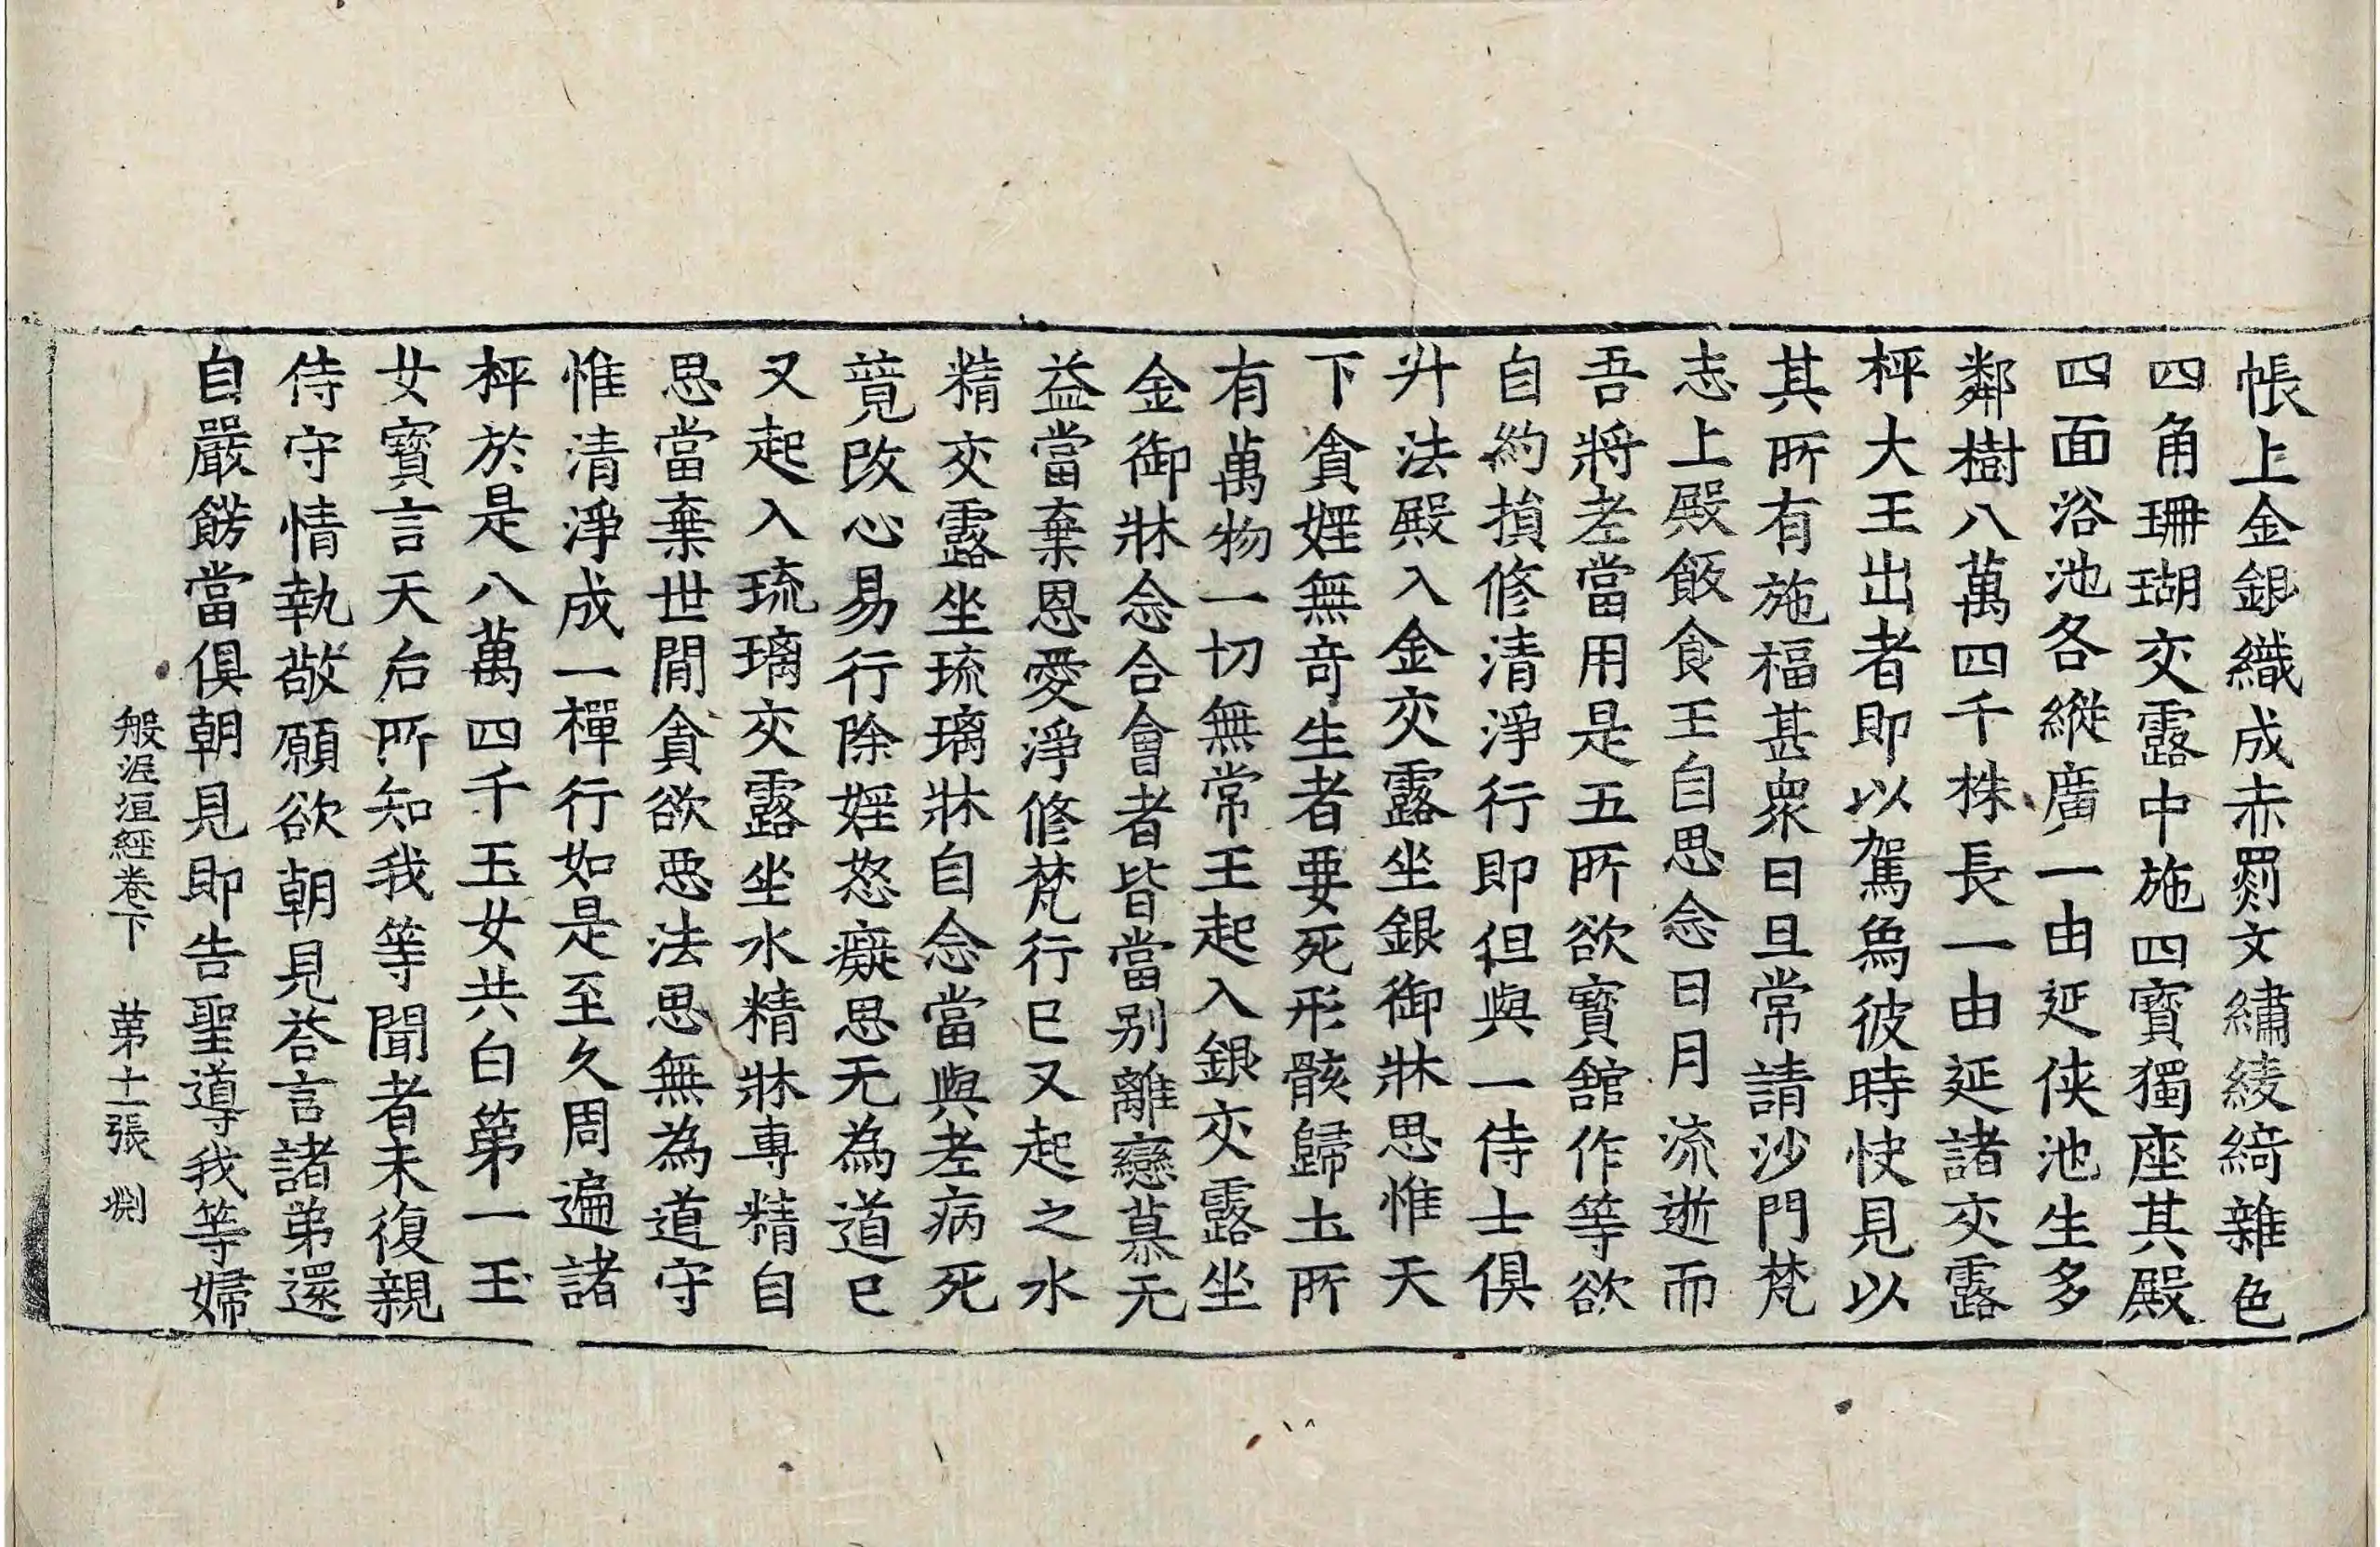 帳上金銀織成赤罽文繡綾綺雜色
四角珊瑚交露中施四寶獨座其殿
四面浴池各縱廣一由延俠池生多
鄰樹八萬四千株長一由延諸交露
枰大王出者即以駕爲彼時快見以
其所有施福甚衆日旦常請沙門梵
志上殿飯食王自思念日月流逝而
吾將老當用是五所欲寶舘作等欲
自約損修清淨行即但與一侍士俱
升法殿入金交露坐銀御牀思惟天
下貪婬無竒生者要死形骸歸土所
有萬物一切無常王起入銀交露坐
金御牀念合會者皆當別離戀慕无
益當棄恩愛淨修梵行已又起之水
精交露坐琉璃牀自念當與老病死
竟改心易行除婬怒癡思无為道已
又起入琉璃交露坐水精牀專精自
思當棄世閒貪欲惡法思無為道守
惟清淨成一禪行如是至久周遍諸
枰於是八萬四千玉女共白第一玉
女寶言天后所知我等聞者未復親
侍守情執敬願欲朝見荅言諸弟還
自嚴餝當俱朝見即告聖導我等婦
般泥洹經卷下　第十一張　淵